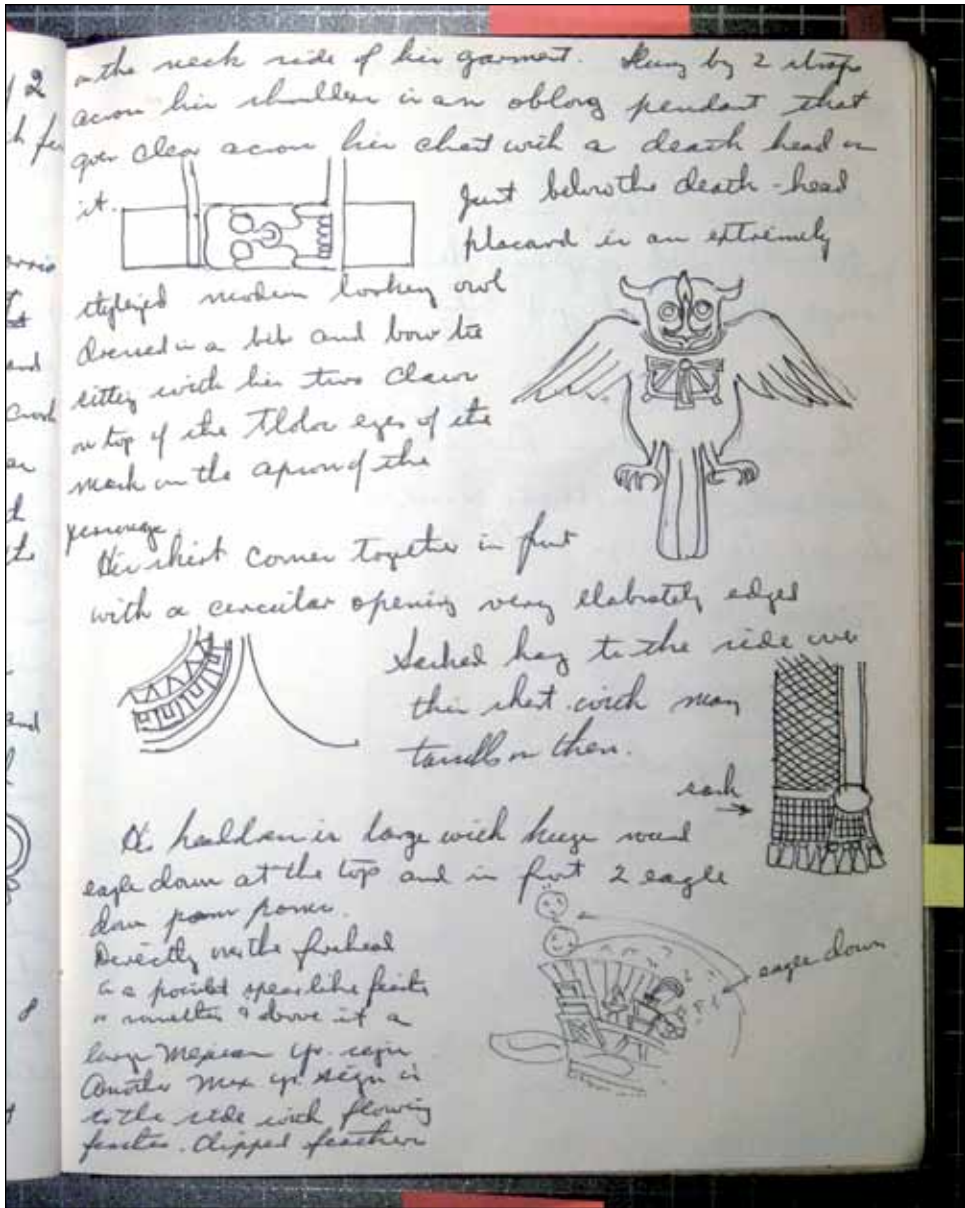 on the neck side of his garment. Hung by 2 straps
across his shoulders is an oblong pendant that
goes clear across his chest with a death head on
it.
Just below the death-head
placard is an extremely
stylized modern looking owl
dressed in a bib and bow tie
sitting with his two claws
on top of the Tlaloc eyes of the
mask on the apron of the
personage.
His skirt comes together in front
with a circular opening very elabrately edged
Sashes hang to the side over
this skirt with many
tassels on them.
sash
His headdress is large with huge round
eagle down at the top and in front 2 eagle
down poms.
Directly over the forehead
is a pointed spearlike feather
& above it a
large Mexican yr. sign
Another Mex yr. sign is
to the side with flowing
feathers. Clipped feathers
eagle down
12
and
and
8